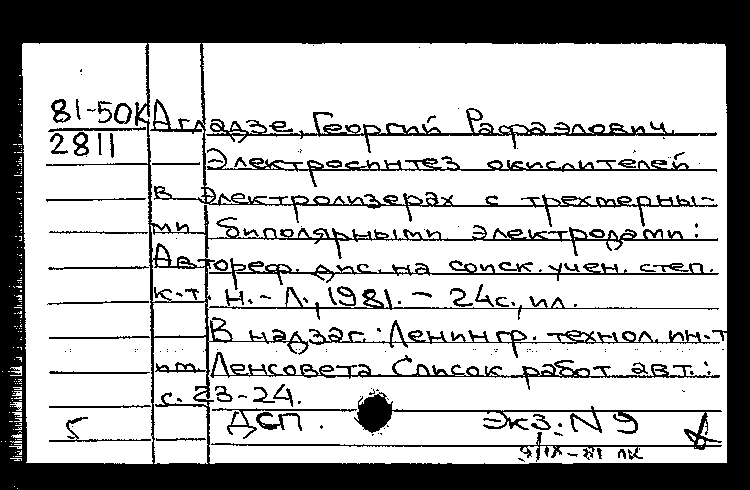 81-50К Агладзе, Георгий Рафаэлович
2811
Электросинтез окислителей
в электролизерах с трехмерны-
ми биполярными электродами:
Автореф. дис. на соиск. учен. степ.
к.т.н. - Л., 1981. - 24с., ил.
В надзаг.: Ленингр. технол. ин-т
им. Ленсовета Список работ авт.:
с. 23-24.
5 ДСП. Экз. N 9
9/IX-81 лк